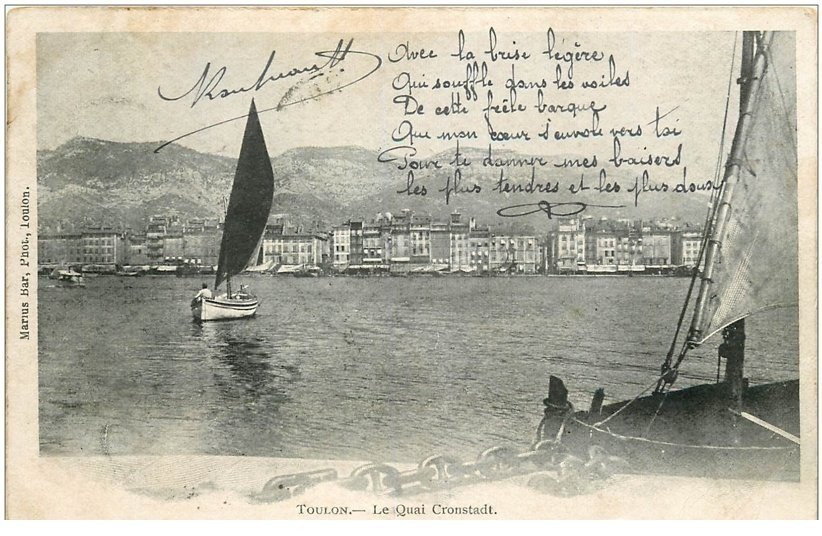 Avec la brise légère
Qui souffle dans les voiles
De cette frêle barque
Que mon cœur s'envole vers toi
Pour te donner mes baisers
les plus tendres et les plus doux
Marius Bar, Phot., Toulon.
Toulon.— Le Quai Cronstadt.